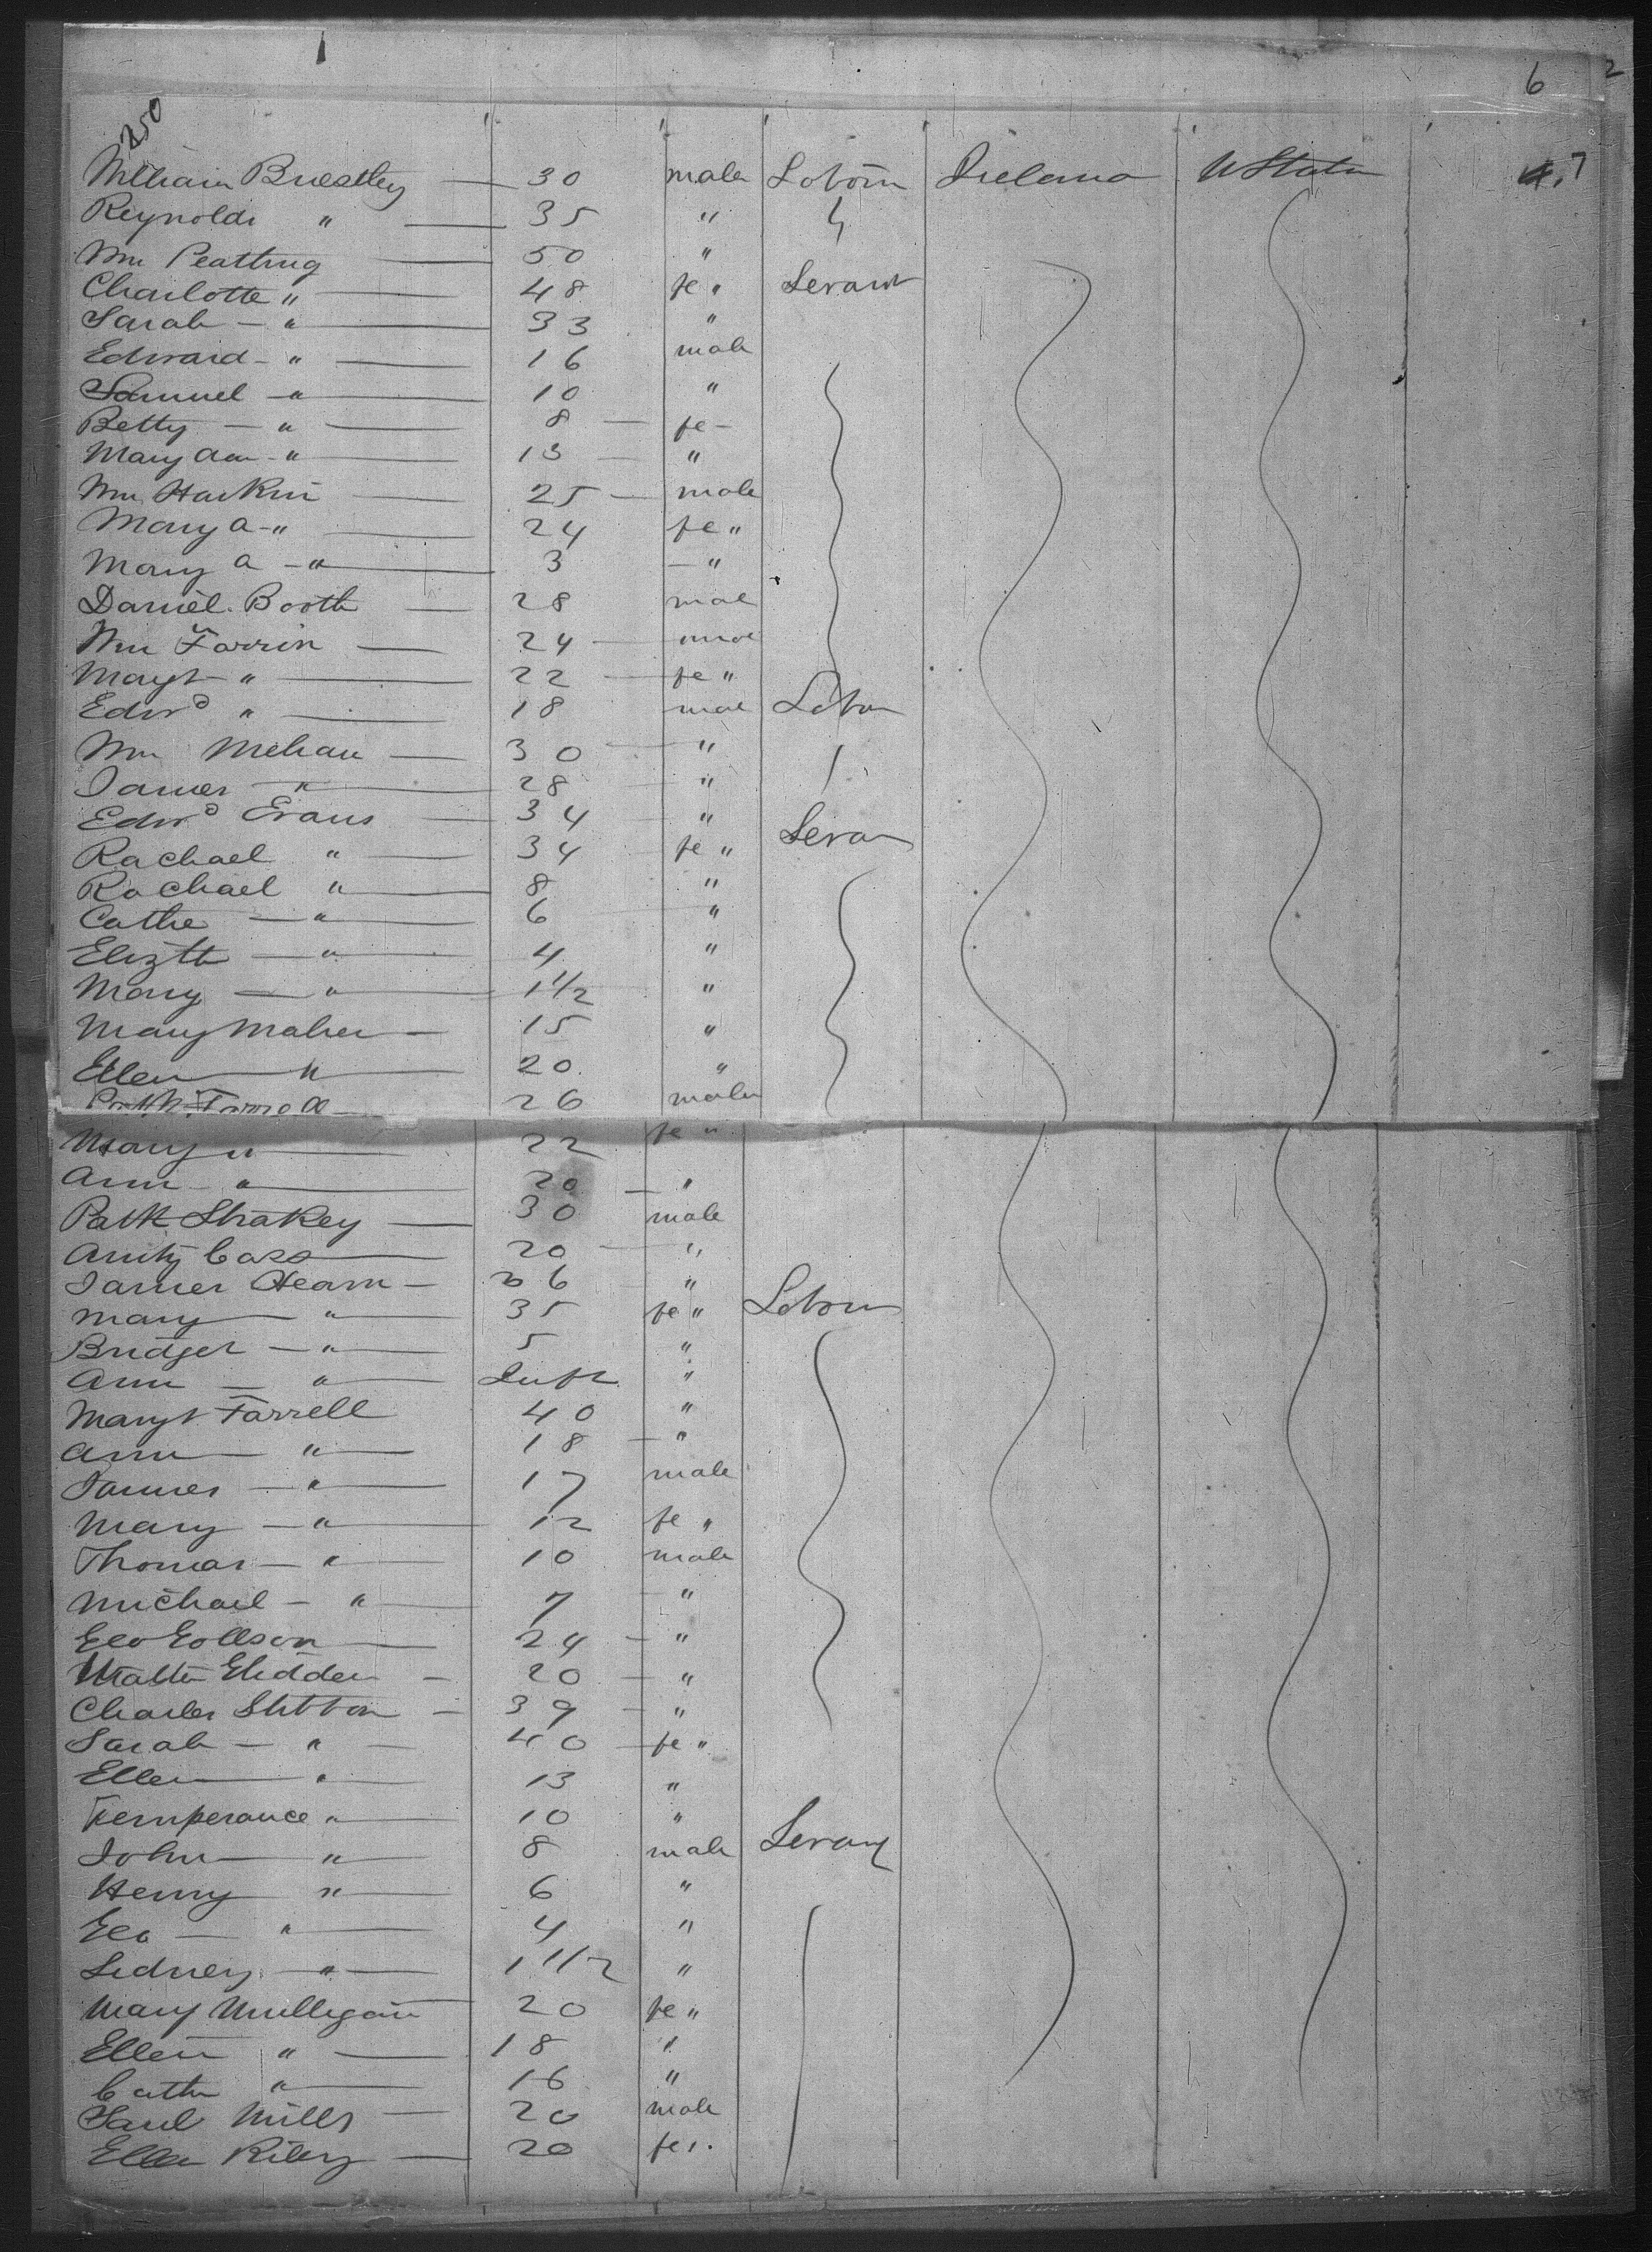 6 2
250
William Briestley — 30 male Laborn Ireland U States
Reynolds " — 35 "
Wm Peatling — 50 "
Charlotte " — 48 fe " Servant
Sarah — " — 33 "
Edward - " — 16 male
Samuel - " — 10 "
Betty — " — 8 — fe -
Mary Ann - " — 13 — "
Wm Harkin — 25 — male
Mary A - " — 24 fe "
Mary A - " — 3 — "
Daniel Booth — 28 male
Wm Farrin — 24 — male
Margt - " — 22 — fe "
Edwd " — 18 male Labor
Wm Mehan — 30 — "
James — " — 28 — "
Edwd Evans — 34 — "
Rachael " — 34 fe " Servan
Rachael " — 8 "
Cathe — " — 6 "
Elizth — " — 4 "
Mary — " — 1 1/2 "
Mary Maher — 15 "
Ellen — " — 20 "
Patk Farrell — 26 male
Mary " — 22 fe "
Ann - " — 20 — "
Patk Shakey — 30 male
Anty Cass — 20 — "
James Hearn — 36 "
Mary — " — 35 fe " Laborn
Bridget — " — 5 "
Ann — " — Inft "
Margt Farrell 40 "
Ann — " — 18 — "
James — " — 17 male
Mary — " — 12 fe "
Thomas — " — 10 male
Michael — " — 7 — "
Geo Gollson — 24 — "
Walter Glidden — 20 — "
Charles Stibbon — 39 — "
Sarah — " — 40 — fe "
Ellen — " — 13 "
Temperance " — 10 "
John — " — 8 male Servan
Henry " — 6 "
Geo — " — 4 "
Sidney — " — 1 1/2 "
Mary Mulligan 20 fe "
Ellen " — 18 "
Cath " — 16 "
Saul Mills — 20 male
Ellen Riley — 20 fe "